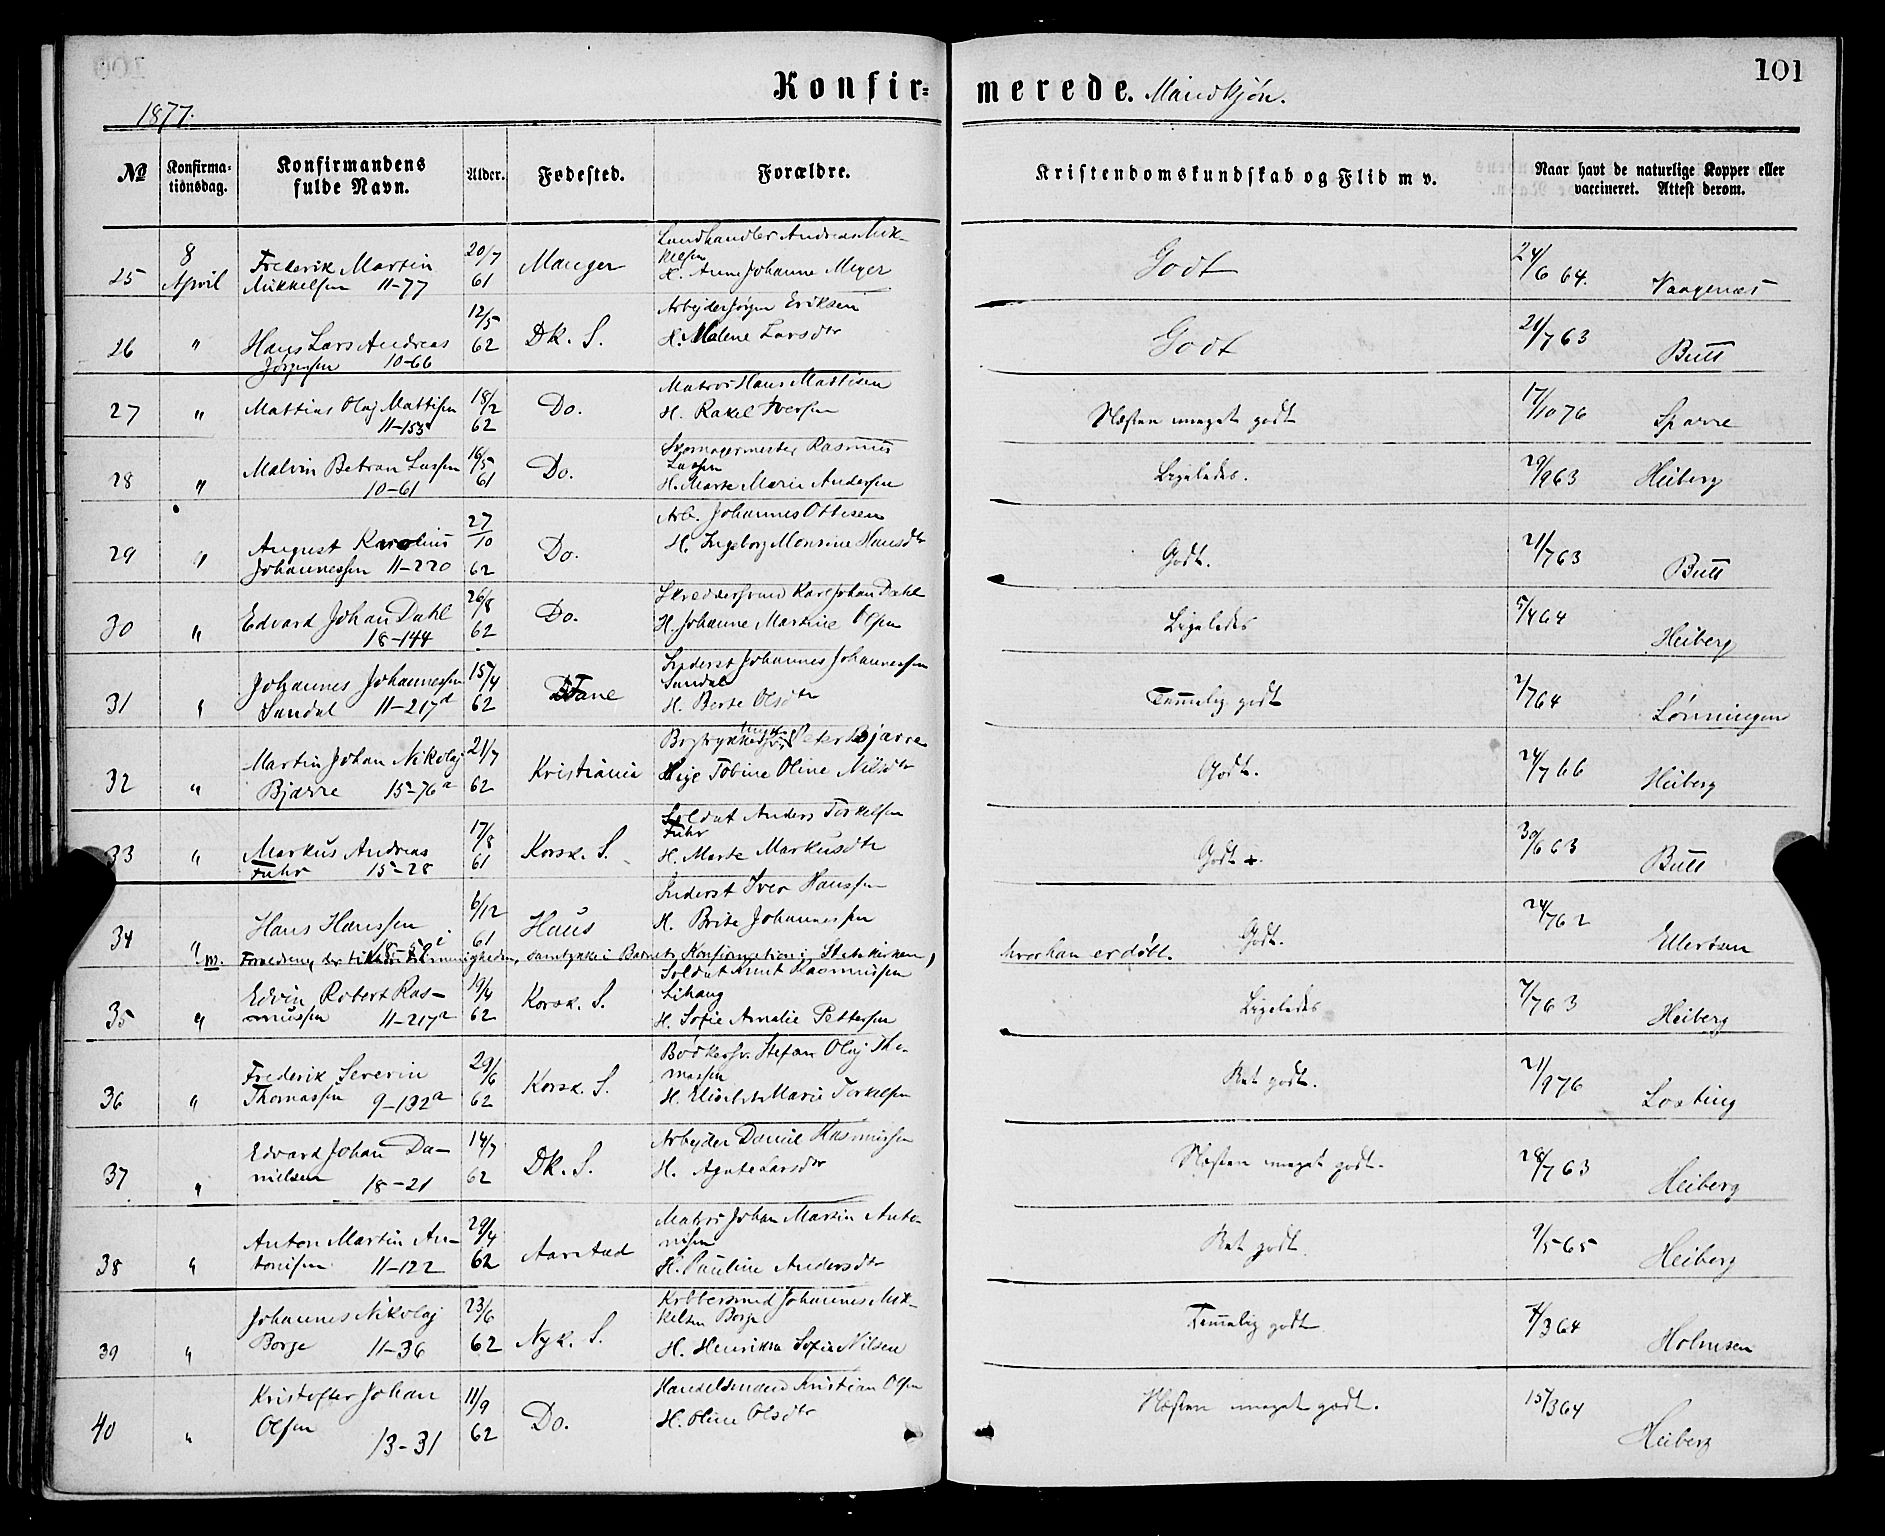 101
Konfir= merede. Mandkjøn.
1877.
№ Konfirma- tidnsdag. Konfirmandens fulde Navn. Alder. Fødested. Forældre. Kristendomskundskab og Flid m v. Naar havt de naturlige Kopper eller vaccineret. Attest derom.
Landhandler Andreas Mik-
25 8 April Frederik Martin 20/7 61 Manger kelsen Godt 24/6 64.
Mikkelsen 11-77 H. Anne Johanne Meyer Vaagenæs
Arbejder Jørgen Eriksen
26 " Hans Lars Andreas 12/5 62 Dk. S. H. Malene Larsdtr Godt 21/7 63
Jørgensen 10-66 Butt
Matros Hans Mattisen
27 " Mattias Olaj Mattisen 18/2 62 Do. H. Rakel Iversen Næsten meget godt 17/10 76 Sparre
11-153
Skomagermester Rasmus
28 " Malvin Betran Lassen 16/5 61 Do. Lassen Ligeledes. 29/9 63 Heiberg
10-61 H. Marte Marie Andersen
Arb. Johannes Ottesen
29 " August Karolius 27/10 62 Do. H. Ingeborg Monsine Hansdtr Godt. 21/7 63
Johannessen 11-220 Butt
Skreddersvend Karl Johan Dahl
30 " Edvard Johan Dahl 26/8 62 Do. H. Johanne Martine Olsen Ligeledes 5/4 64
18-144 Heiberg
Inderst Johannes Johannessen
31 " Johannes Johannessen 15/4 62 Fane Sandal Temmelig godt 1/7 64
Sandal 11-217d H. Berte Olsdtr Lønningen
Bogtrykkersv. Peter Bjarre
32 " Martin Johan Nikolaj 21/7 62 Kristiania Pige Tobine Oline Nilsdtr Godt. 24/7 66
Bjarre 15-76a Heiberg
Soldat Anders Torkelsen
33 " Markus Andreas 17/8 61 Korsk. S. Fuhr Godt 30/6 63
Fuhr 15-28 H. Marte Markusdtr Butt
Inderst Iver Hanssen
34 " Hans Hanssen 6/12 61 Haus H. Brite Johannessen Godt. 24/7 62 Ellertsen
samtykke i Barnets Konfirmation i Statskirken, hvor han er døbt.
Soldat Knut Rasmussen
35 " Edvin Robert Ras- 19/4 62 Korsk. S. Lihaug Ligeledes 7/7 63
mussen 11-217a H. Sofie Amalie Pettersen Heiberg
Bødkersv. Stefan Olaj Tho-
36 " Frederik Severin 29/6 62 Korsk. S. massen Ret godt. 21/9 76
Thomassen 9-132a H. Elisabet Marie Torkelsen Losting
Arbejder Daniel Rasmussen
37 " Edvard Johan Da- 14/7 62 Dk. S. H. Agate Larsdtr Næsten meget godt. 28/7 63
nielsen 18-21 Heiberg
Matros Johan Martin Anto-
38 " Anton Martin An- 29/4 62 Aarstad nisen Ret godt. 9/5 65
tonisen 11-122 H. Pauline Andersdtr Heiberg
Kobbersmed Johannes Mik-
39 " Johannes Nikolaj 23/6 62 Nyk. S. kelsen Borge Temmelig godt 4/3 64
Borge 11-36 H. Henrikke Sofie Nilsen Holmsen
Handelsmand Kristian Olsen
40 " Kristoffer Johan 11/9 62 Do. H. Oline Olsdtr Næsten meget godt. 15/3 64
Olsen 13-31 Heiberg